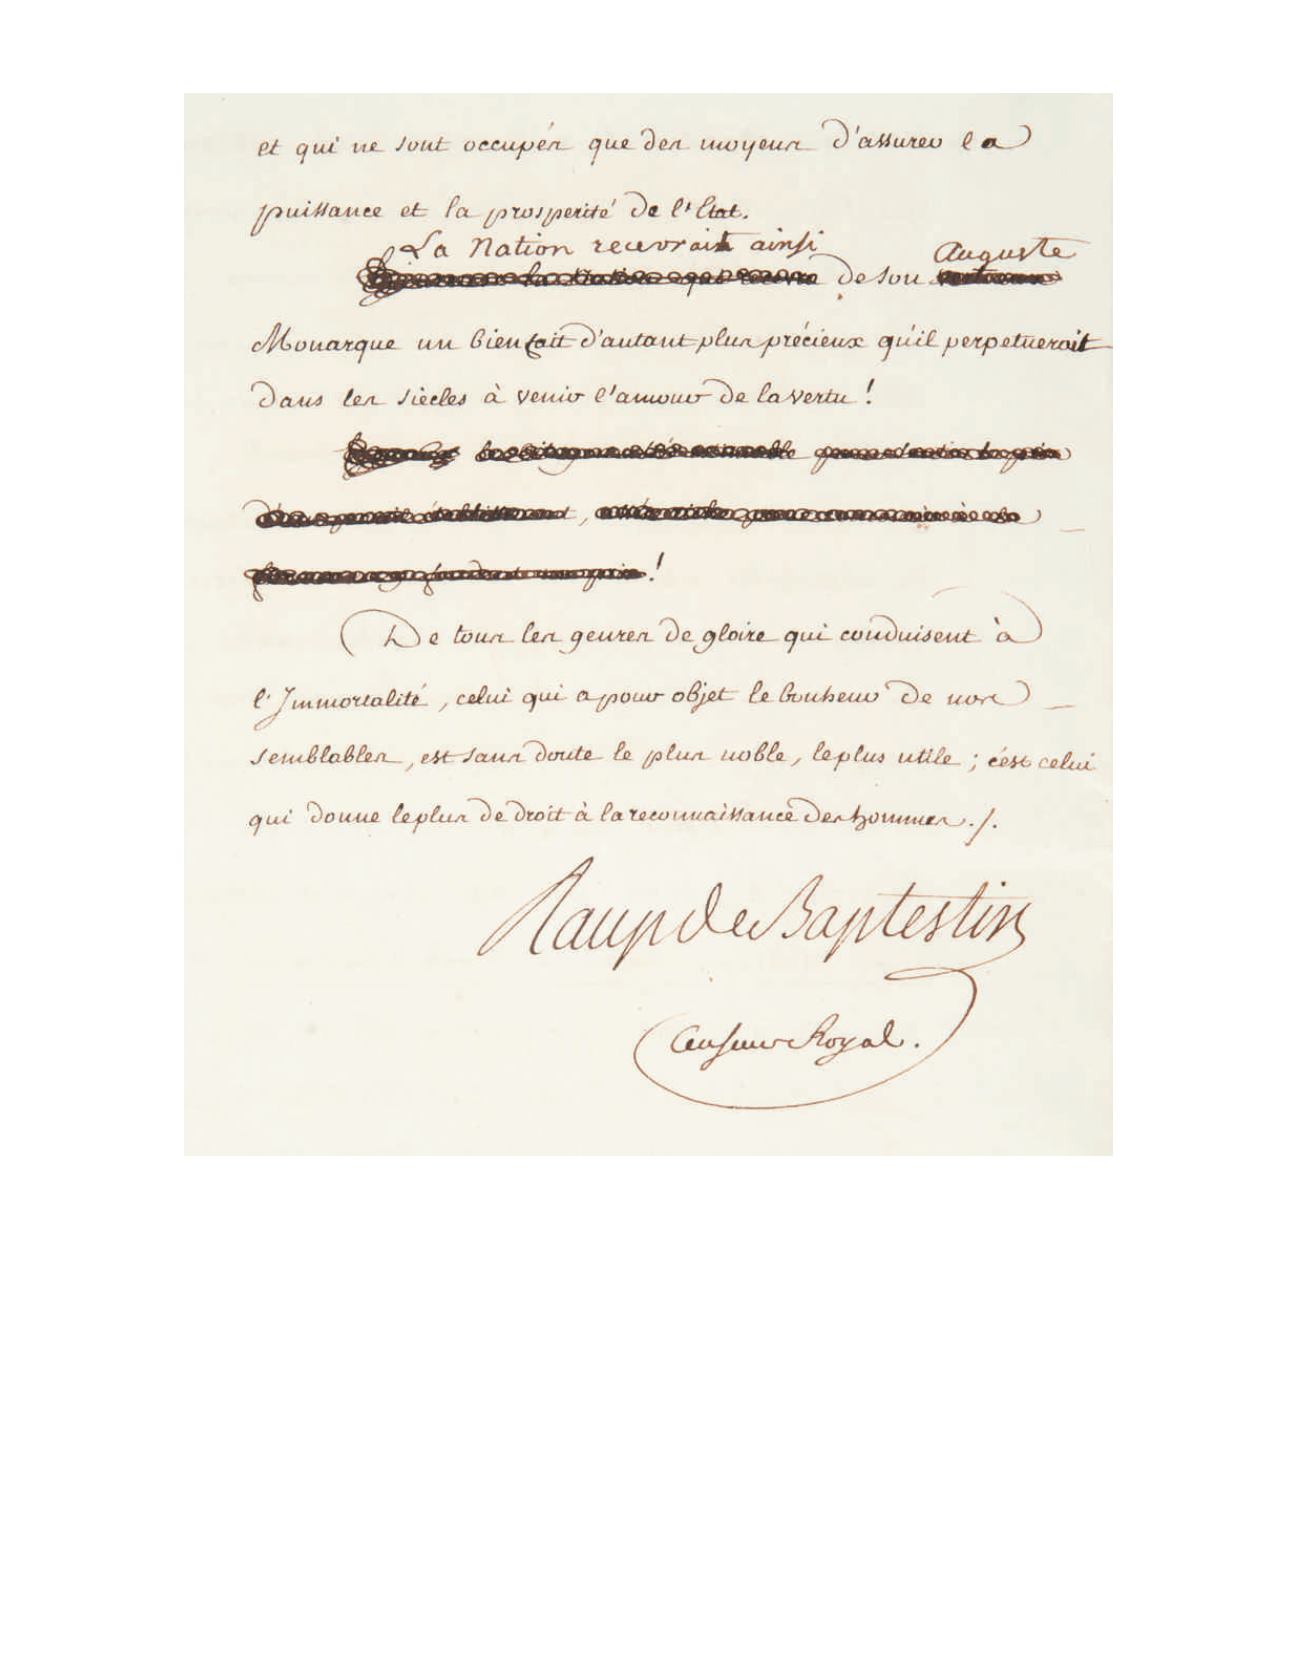 et qui ne sont occupés que des moyens d'assurer la
puissance et la prosperité de l'Etat.
La Nation recevrait ainsi
Auguste
de son
Monarque un bienfait d'autant plus précieux qu'il perpetueroit
dans les siècles à venir l'amour de la vertu !
!
De tous les genres de gloire qui conduisent à
l'Immortalité, celui qui a pour objet le bonheur de nos
semblables, est sans doute le plus noble, le plus utile ; c'est celui
qui donne le plus de droit à la reconnaissance des hommes ./.
Raup de Baptestin
Censeur Royal.